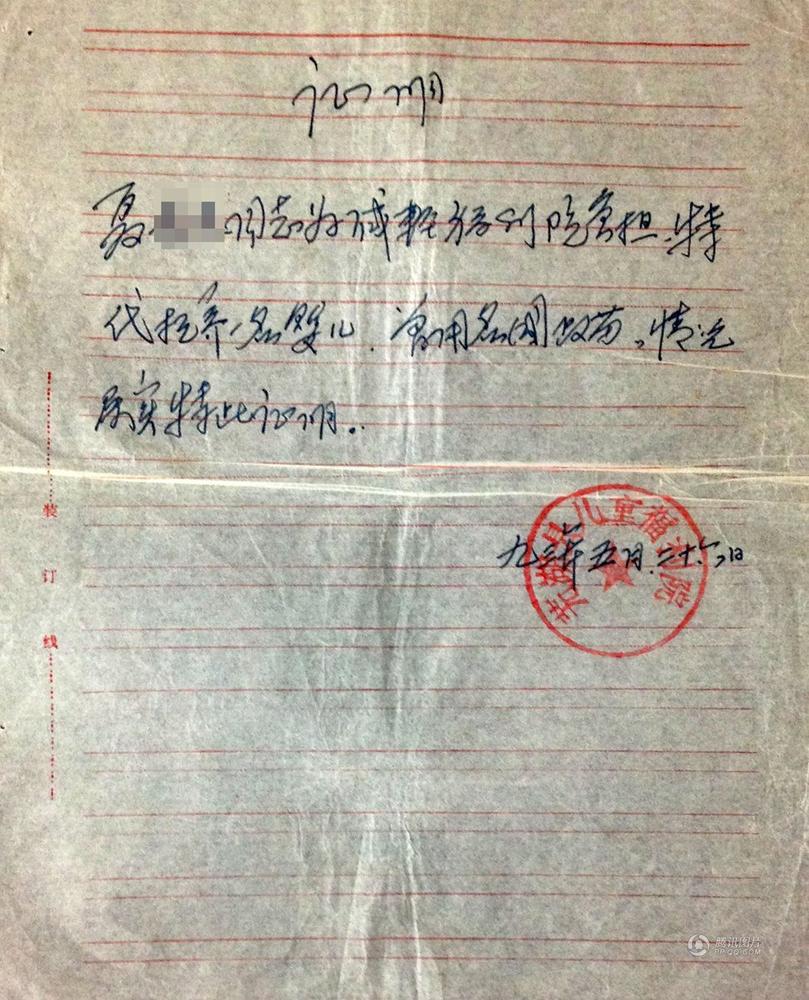 证明
聂 同志为减轻福利院负担.特
代抚养一名婴儿.曾用名 。情况
属实特此证明.
芜湖县儿童福利院
九三年五月二十六日
装订线
腾讯图片
PP.QQ.COM